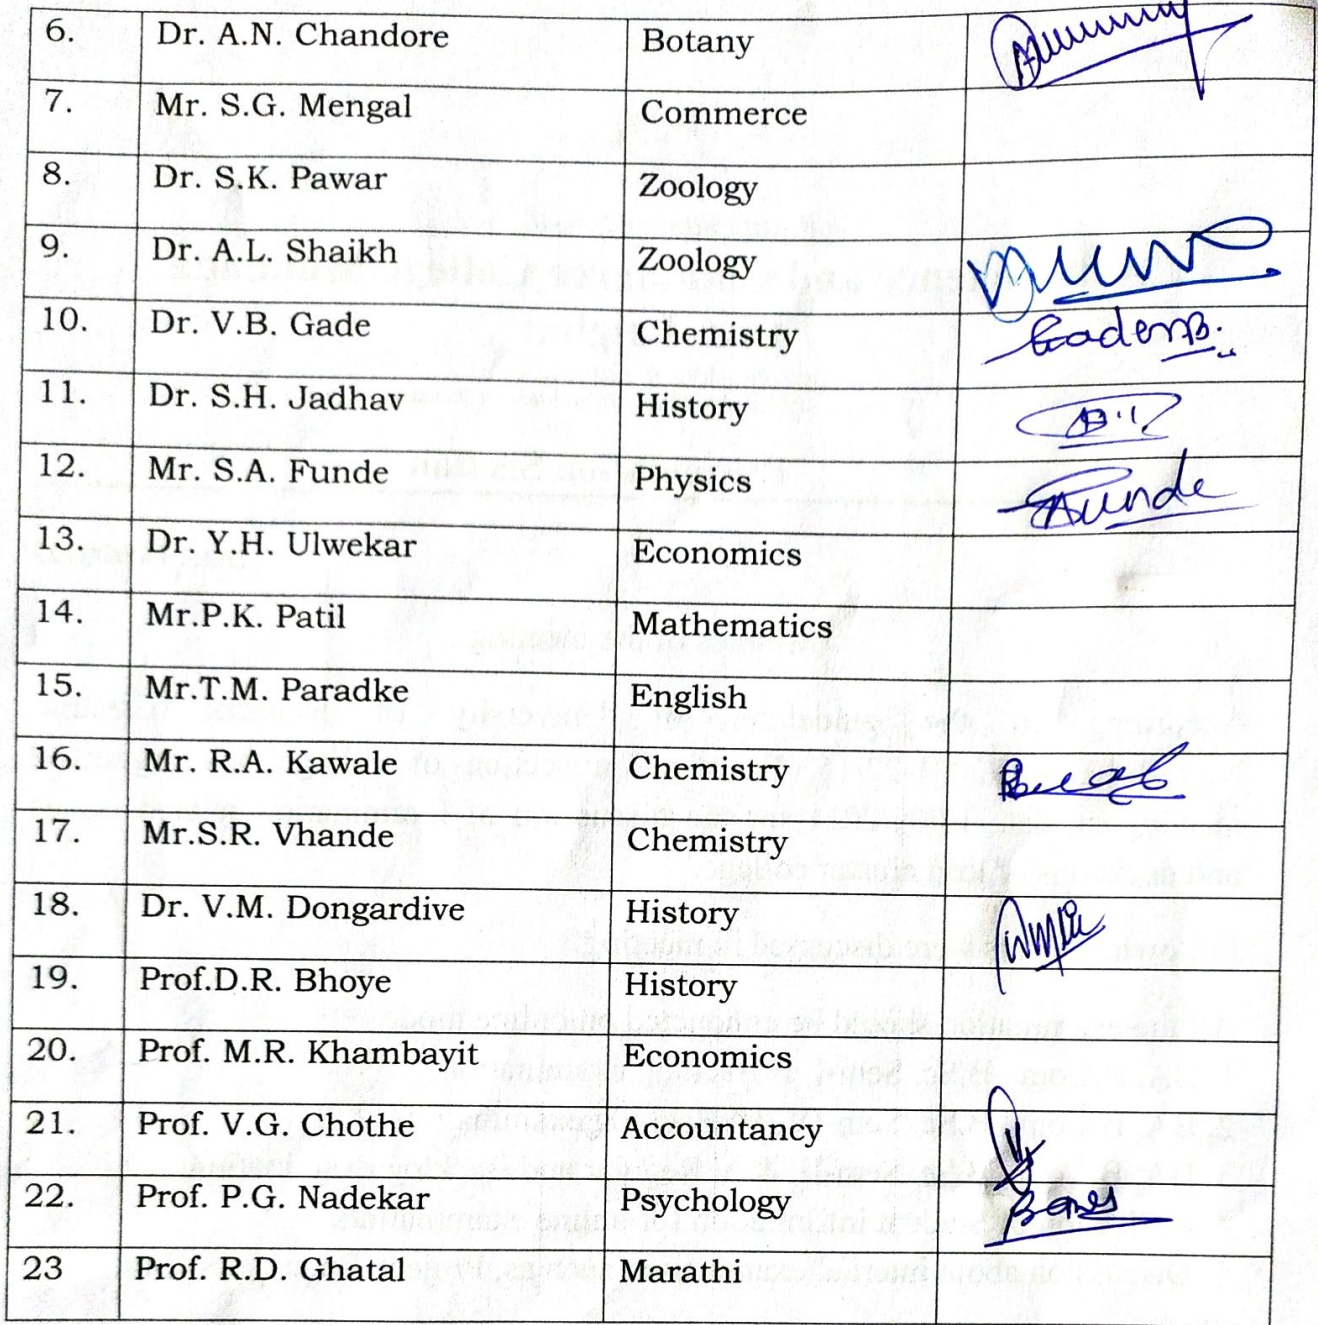 6. Dr. A.N. Chandore Botany
7. Mr. S.G. Mengal Commerce
8. Dr. S.K. Pawar Zoology
9. Dr. A.L. Shaikh Zoology
10. Dr. V.B. Gade Chemistry
11. Dr. S.H. Jadhav History
12. Mr. S.A. Funde Physics
13. Dr. Y.H. Ulwekar Economics
14. Mr.P.K. Patil Mathematics
15. Mr.T.M. Paradke English
16. Mr. R.A. Kawale Chemistry
17. Mr.S.R. Vhande Chemistry
18. Dr. V.M. Dongardive History
19. Prof.D.R. Bhoye History
20. Prof. M.R. Khambayit Economics
21. Prof. V.G. Chothe Accountancy
22. Prof. P.G. Nadekar Psychology
23 Prof. R.D. Ghatal Marathi